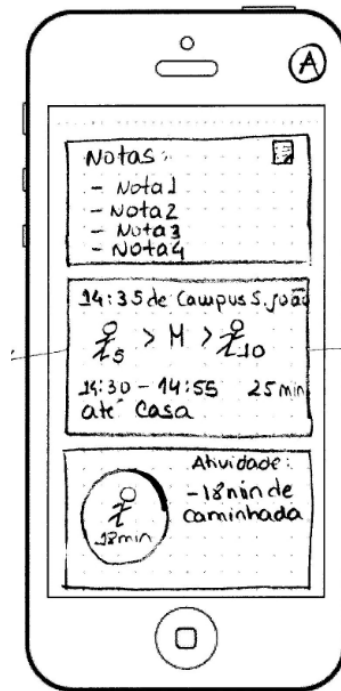 A
Notas:
- Nota1
- Nota2
- Nota3
- Nota4
14:35 de Campus S. João
5 > M > 10
14:30 - 14:55 25 min
até Casa
Atividade:
- 18min de
caminhada
18min